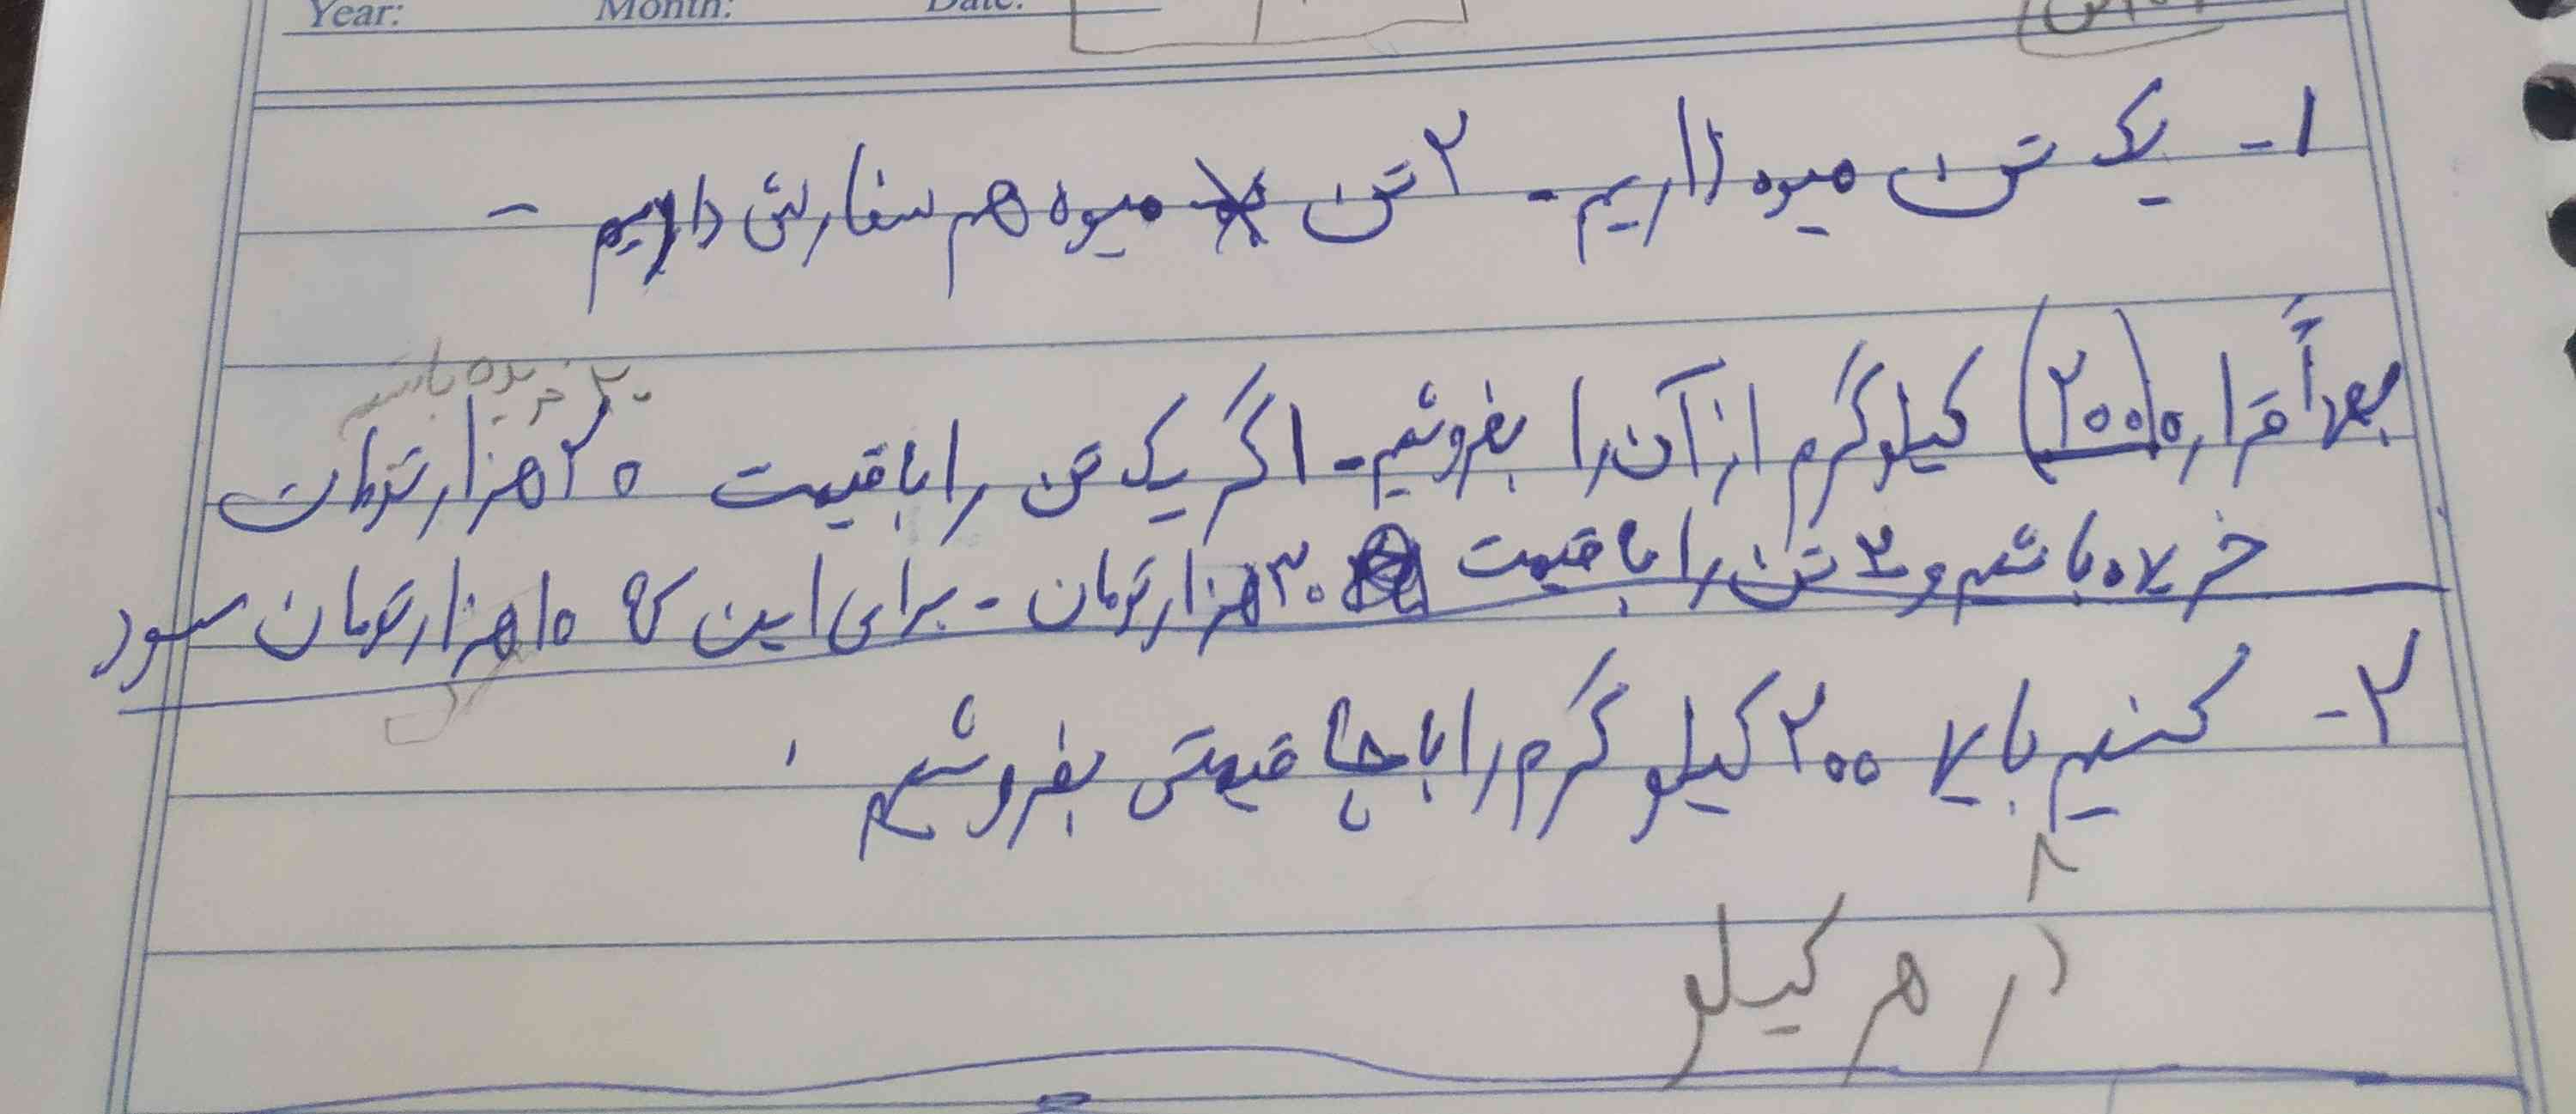 Year: Month: Date:
۱- یک تن میوه داریم - ۲ تن میوه هم سفارش داریم -
خریده باشیم
بعداً قراره (۲۰۰) کیلوگرم از آن را بفروشیم - اگر یک تن را با قیمت ۲۰ هزار تومان
خریده باشیم و ۲ تن را با قیمت ۳۰ هزار تومان - برای این که ۱۰ هزار تومان سود
۲- کنیم باید ۲۰۰ کیلو گرم را با چه قیمتی بفروشیم.
در هر کیلو